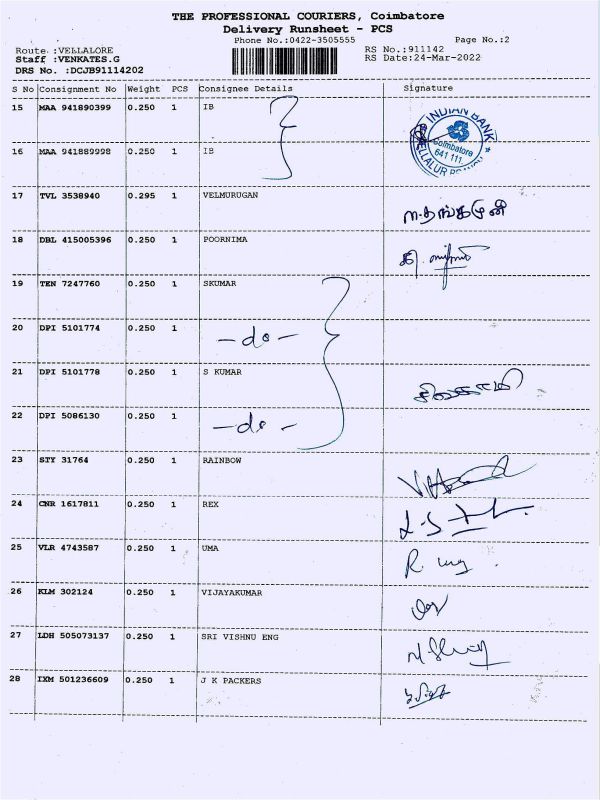 THE PROFESSIONAL COURIERS, Coimbatore
Delivery Runsheet - PCS
Phone No.:0422-3505555 Page No.:2
Route :VELLALORE RS No.:911142
Staff :VENKATES.G RS Date:24-Mar-2022
DRS No. :DCJB91114202
S No Consignment No Weight PCS Consignee Details Signature
15 MAA 941890399 0.250 1 IB
INDIAN BANK
Coimbatore
641 111
16 MAA 941889998 0.250 1 IB
17 TVL 3538940 0.295 1 VELMURUGAN
18 DBL 415005396 0.250 1 POORNIMA
19 TEN 7247760 0.250 1 SKUMAR
20 DPI 5101774 0.250 1 -do-
21 DPI 5101778 0.250 1 S KUMAR சிவகாமி
22 DPI 5086130 0.250 1 -do-
23 STY 31764 0.250 1 RAINBOW
24 CNR 1617811 0.250 1 REX
25 VLR 4743587 0.250 1 UMA
26 KLM 302124 0.250 1 VIJAYAKUMAR
27 LDH 505073137 0.250 1 SRI VISHNU ENG
28 IXM 501236609 0.250 1 J K PACKERS